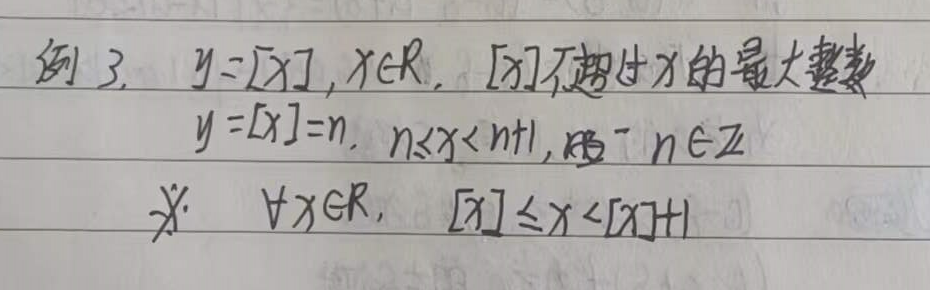 例3. y=[x], x∈R. [x]不超过x的最大整数
y=[x]=n. n≤x<n+1, n∈Z
※. ∀x∈R, [x]≤x<[x]+1